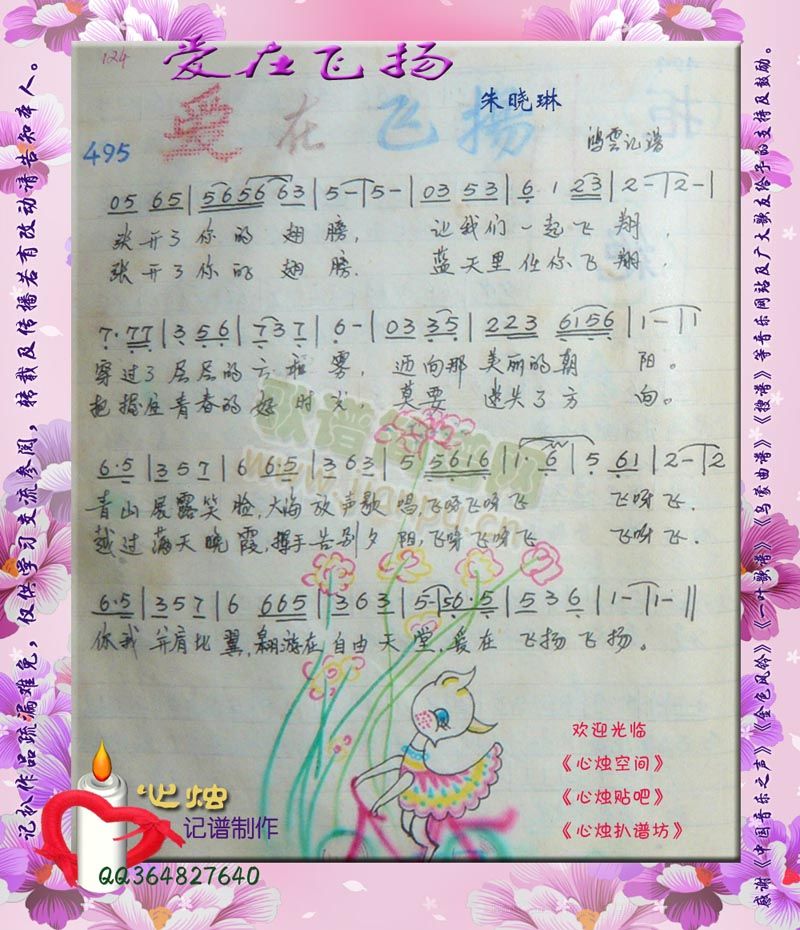 124
爱在飞扬
朱晓琳
爱在飞扬
495
鸿云记谱
05 65 | 565663 | 5-|5- | 03 53 | 6 1 23 | 2-|2-|
张开了你的翅膀, 让我们一起飞翔,
张开了你的翅膀. 蓝天里任你飞翔.
7·77 | 3 56 | 737 | 6- | 03 35 | 223 6156 | 1-|1
穿过了层层的云和雾, 迈向那美丽的朝阳。
把握住青春的好时光, 莫要迷失了方向。
6·5 | 357 | 6 6·5 | 363 | 5 5616 | 1· 6 | 5 61 | 2-|2
青山展露笑脸,大海放声歌唱,飞呀飞呀飞 飞呀飞.
越过满天晚霞,挥手告别夕阳,飞呀飞呀飞 飞呀飞.
6·5 | 357 | 6 665 | 363 | 5-|56·5 | 536 | 1-|1-||
你我并肩比翼,翱游在自由天堂,爱在飞扬飞扬。
欢迎光临
《心烛空间》
《心烛贴吧》
《心烛扒谱坊》
心烛
记谱制作
QQ364827640
歌谱简谱网
www.jianpu.cn
记扒作品疏漏难免，仅供学习交流参阅，转载及传播若有改动请告知本人。
感谢《中国音乐之声》《金色风铃》《一叶歌谱》《乌蒙曲谱》《搜谱》等音乐网站及广大歌友给予的支持及鼓励。